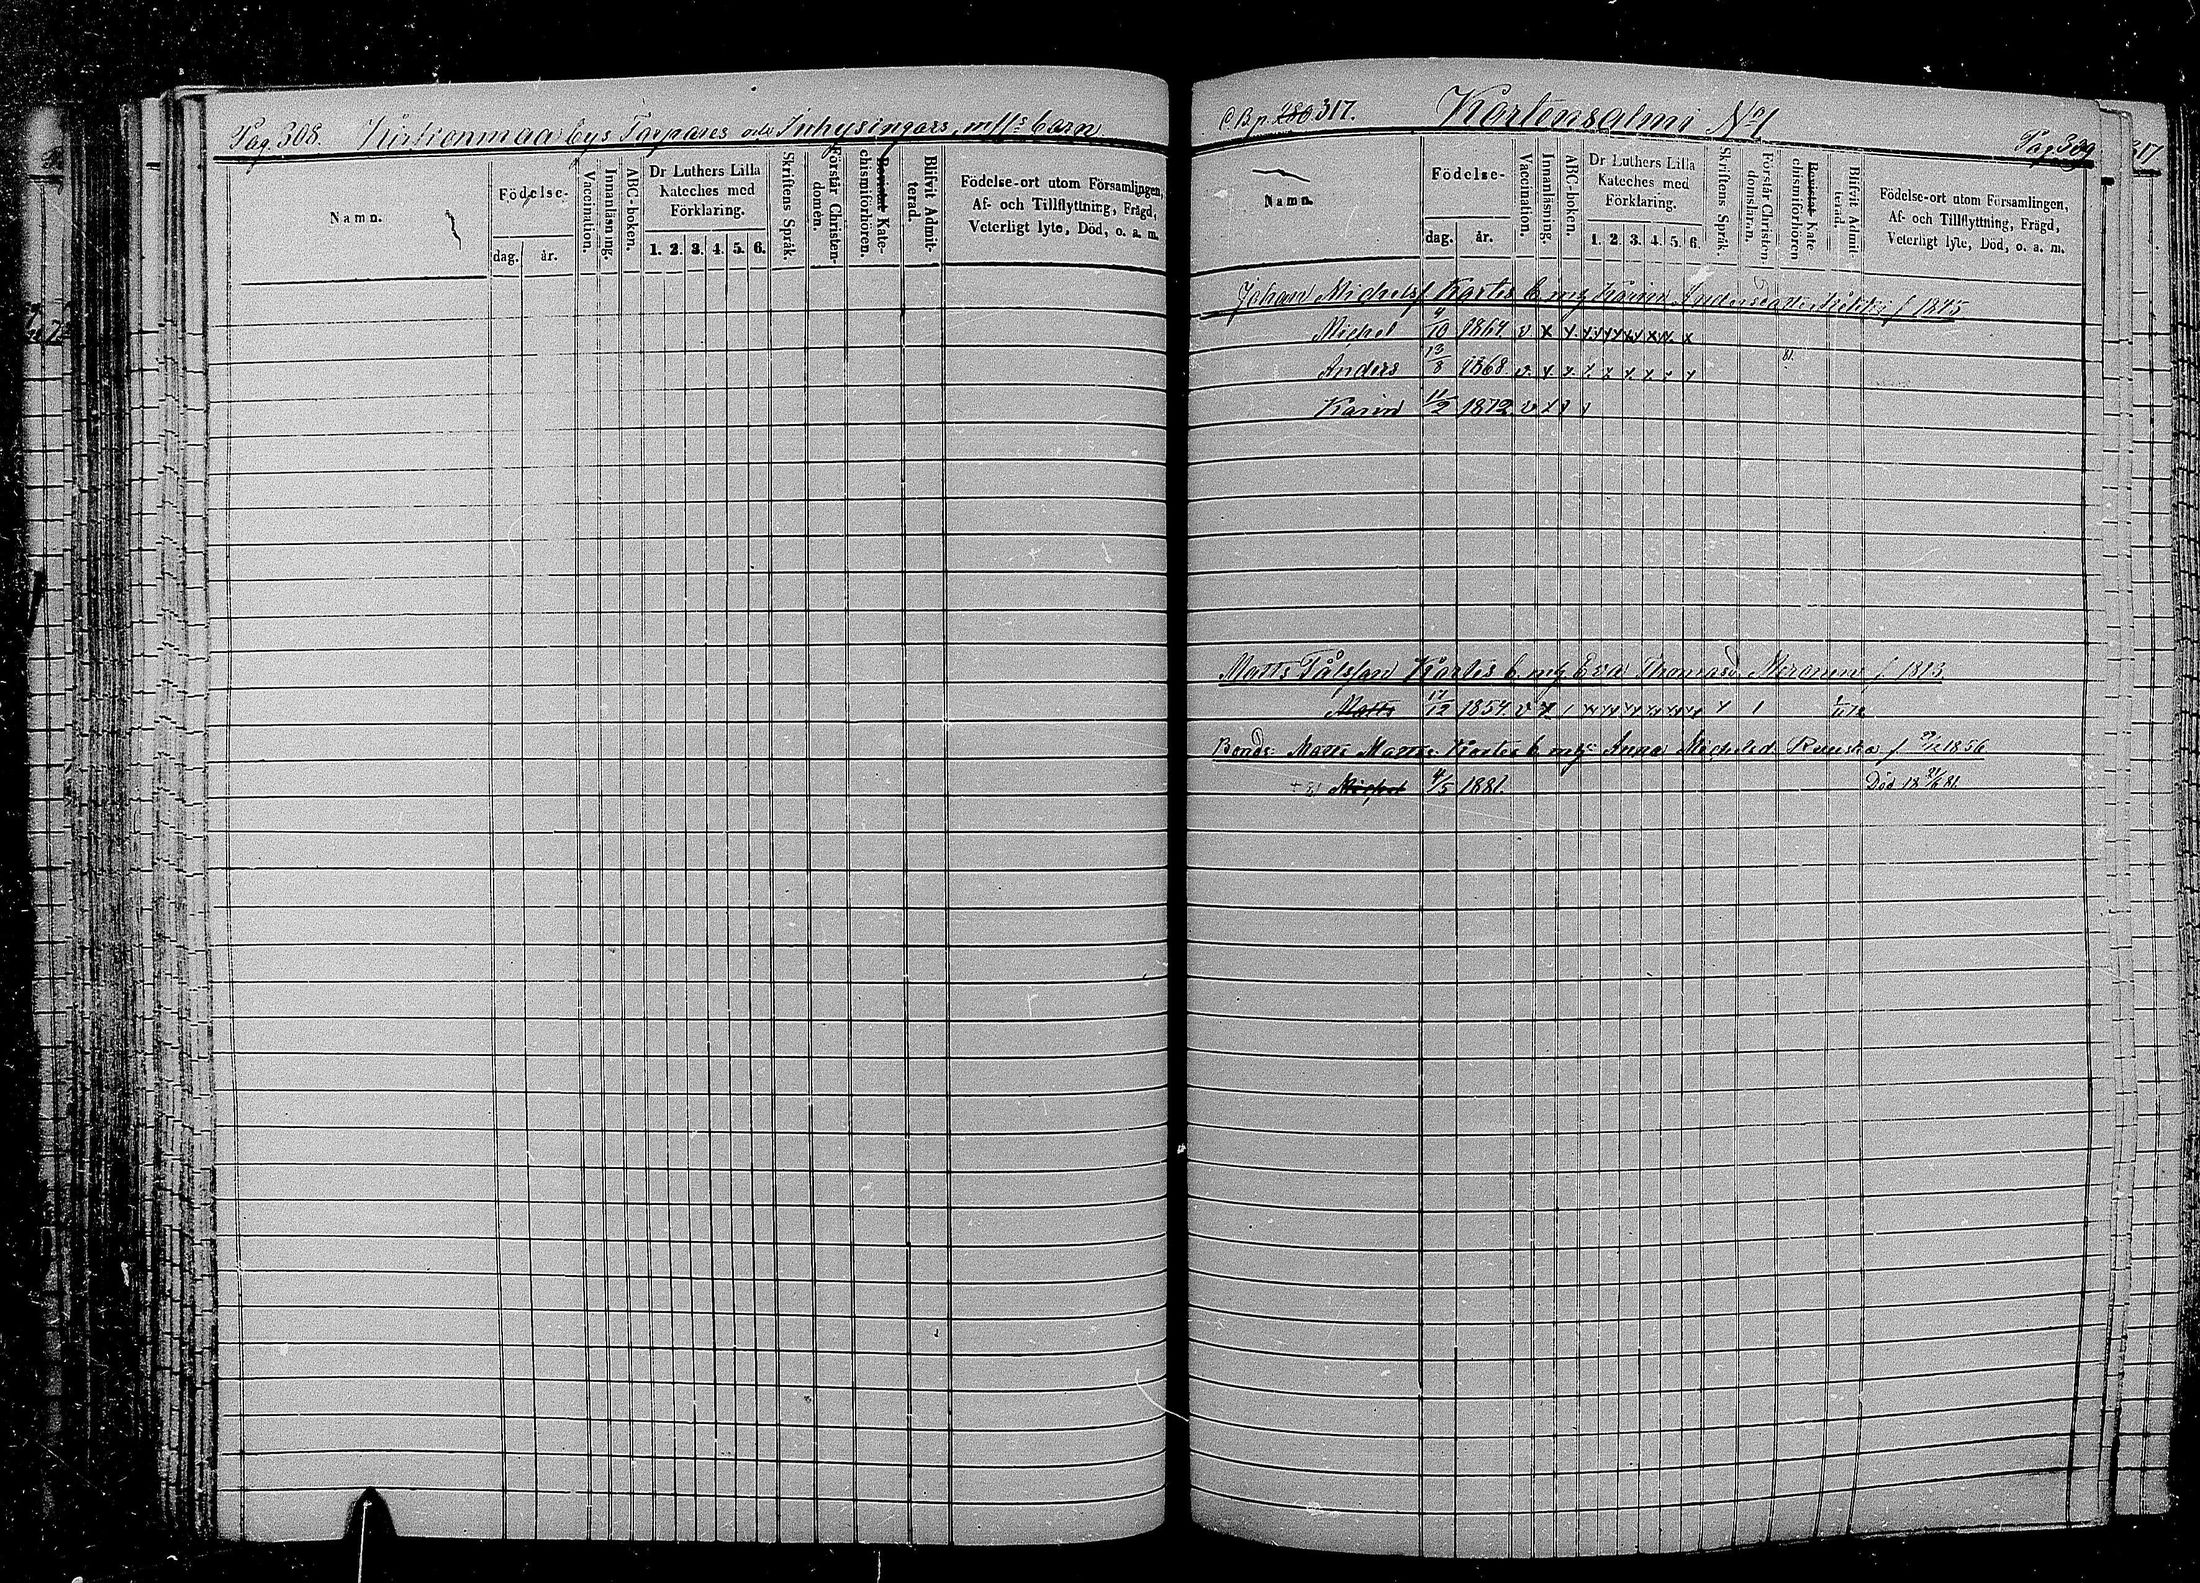 Pag. 308. Kirkonmaa bys Torpares och Inhysingars, m fls barn
Namn.
Födelse-
dag. år.
Vaccination.
Innanläsning.
ABC-boken.
Dr Luthers Lilla
Kateches med
Förklaring.
1. 2. 3. 4. 5. 6.
Skriftens Språk.
Förstår Christen-
domen.
Bevistat Kate-
chismiförhören.
Blifvit Admit-
terad.
Födelse-ort utom Församlingen,
Af- och Tillflyttning, Frägd,
Veterligt lyte, Död, o. a. m.
C. B. p. 280 317. Kortensalmi No 1
Pag. 309
317
Namn.
Födelse-
dag. år.
Vaccination.
Innanläsning.
ABC-boken.
Dr Luthers Lilla
Kateches med
Förklaring.
1. 2. 3. 4. 5. 6.
Skriftens Språk.
Förstår Christen-
domslaran.
Bevistat Kate-
chismiförhören
Blifvit Admit-
terad.
Födelse-ort utom Församlingen,
Af- och Tillflyttning, Frägd,
Veterligt lyte, Död, o. a. m.
Johan Michelsf Kortes b. m. Karin Andersdotter f 1845
Michel 4/10 1864. v x x x x x x x x x
Anders 13/8 1868 v. x x. x x x x x x 81.
Karin 11/2 1872 v x x x
Matts Pålsson Kortes b. m. Eva Thomasd. f 1813
Matts 17/12 1854. v x
Bonds. Matts Matts. Kortes b. m. Anna Michelsd Ruuska f 1856
Michel 4/5 1881. Död 18 21/6 81.